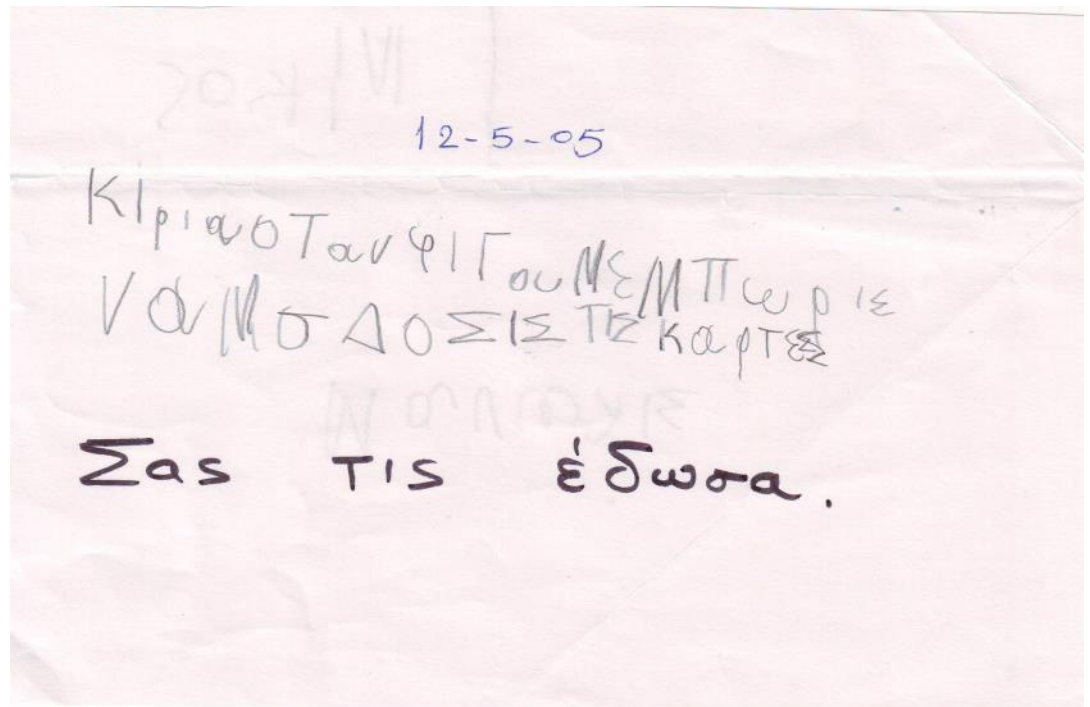 12-5-05
ΚΙριαοΤανφιΓουΜεΜΠωρις
ΝαΜσΔΟΣΙΣ ΤΙΣ καρτες
Σας τις έδωσα.